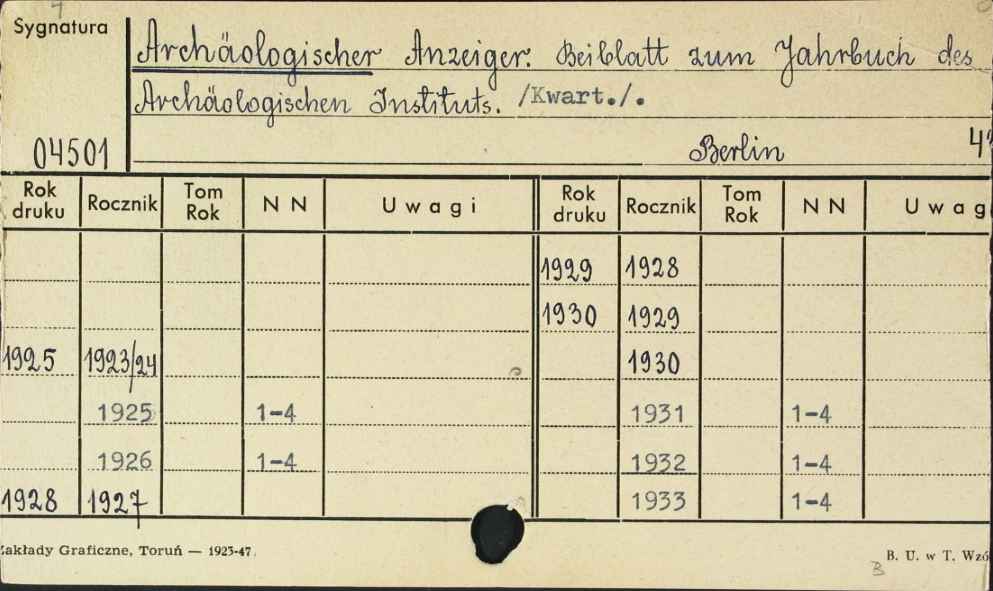 Sygnatura
Archäologischer Anzeiger. Beiblatt zum Jahrbuch des
Archäologischen Instituts. /Kwart./.
04501
Berlin 4°
Rok druku Rocznik Tom Rok N N Uwagi Rok druku Rocznik Tom Rok N N Uwag
1929 1928
1930 1929
1925 1923/24 1930
1925 1-4 1931 1-4
1926 1-4 1932 1-4
1928 1927 1933 1-4
Zakłady Graficzne, Toruń — 1923-47. B. U. w T. Wzó
B